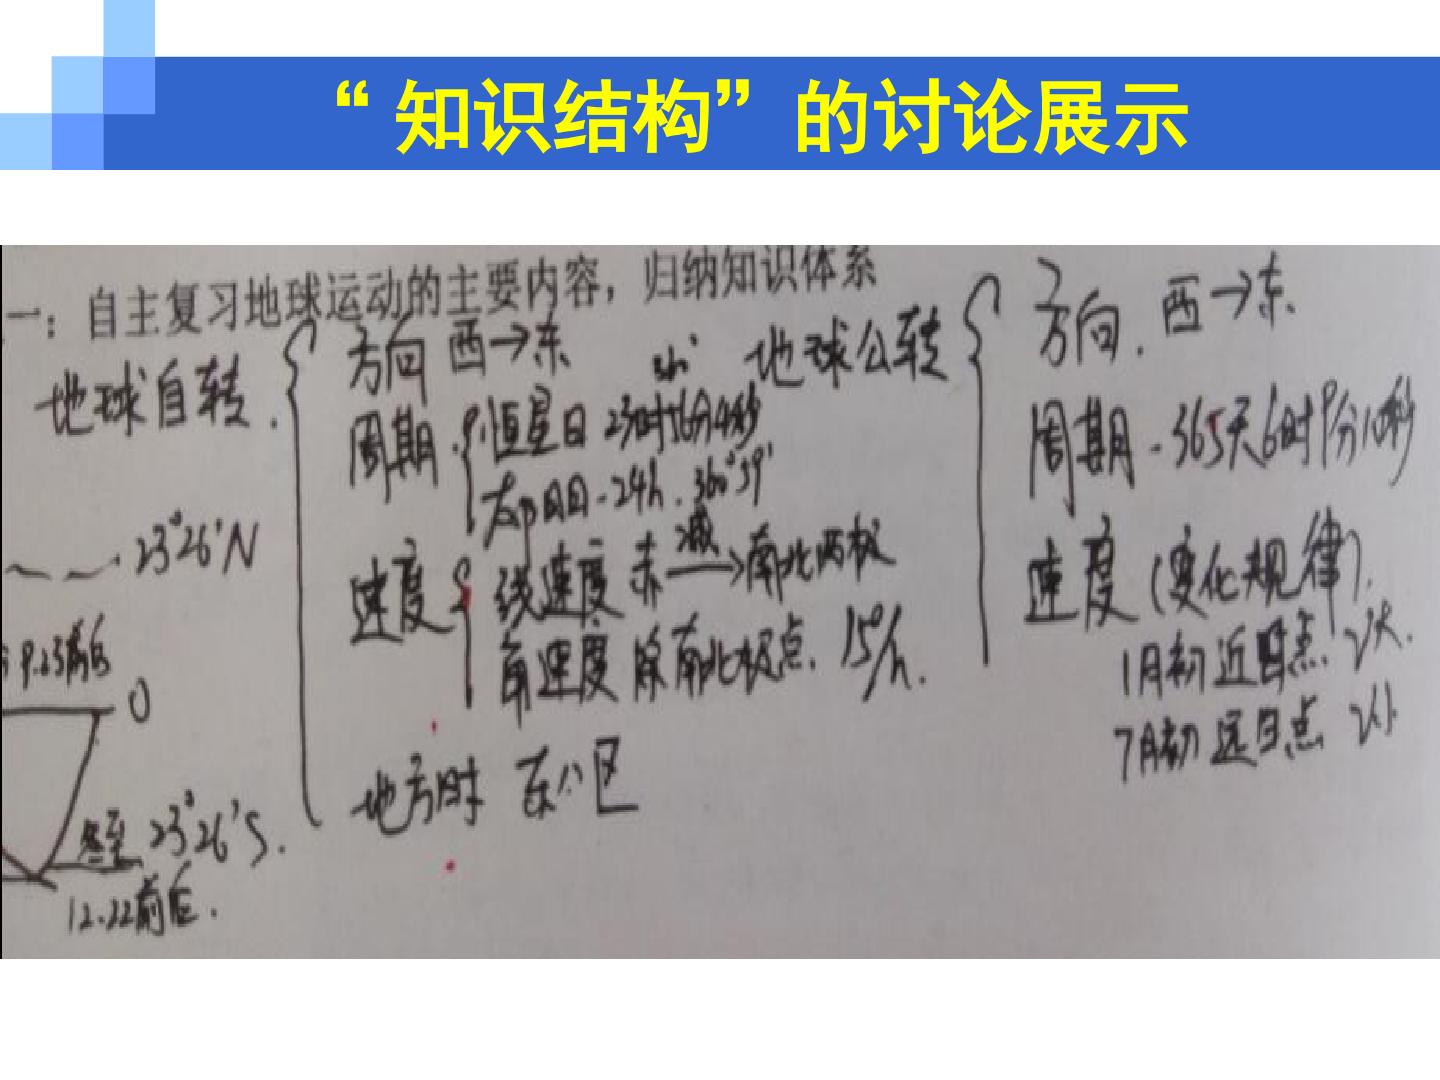 “知识结构”的讨论展示
一：自主复习地球运动的主要内容，归纳知识体系
地球自转.
方向 西→东
周期 恒星日 23时56分4秒 360°
太阳日-24h. 360°59'
速度 线速度 赤 减→南北两极
角速度 除南北极点. 15°/h.
地方时 东八区
地球公转
方向. 西→东.
周期-365天6时9分10秒
速度(变化规律).
1月初 近日点. V大.
7月初 远日点 V小
23°26'N
9.23前后
0
冬至 23°26'S.
12.22前后.